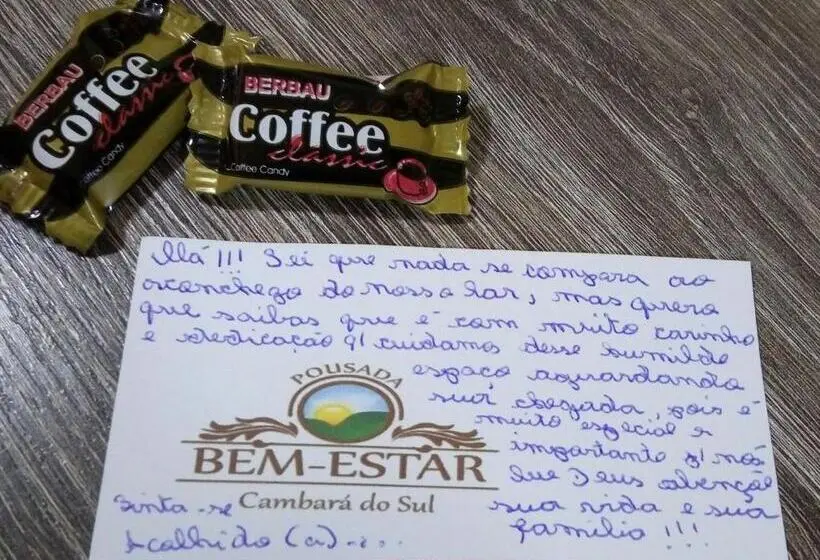 BERBAU
Coffee
classic
Coffee Candy
BERBAU
Coffee
classic
Coffee Candy
Olá!!! Sei que nada se compara ao
aconchego do nosso lar, mas quero
que saibas que é com muito carinho
e dedicação q/ cuidamos desse humilde
espaço aguardando
sua chegada, pois é
muito especial e
importante p/ nós
Que Deus abençõe
sua vida e sua
família!!!
POUSADA
BEM-ESTAR
Cambará do Sul
Sinta-se
Acolhido (a)....